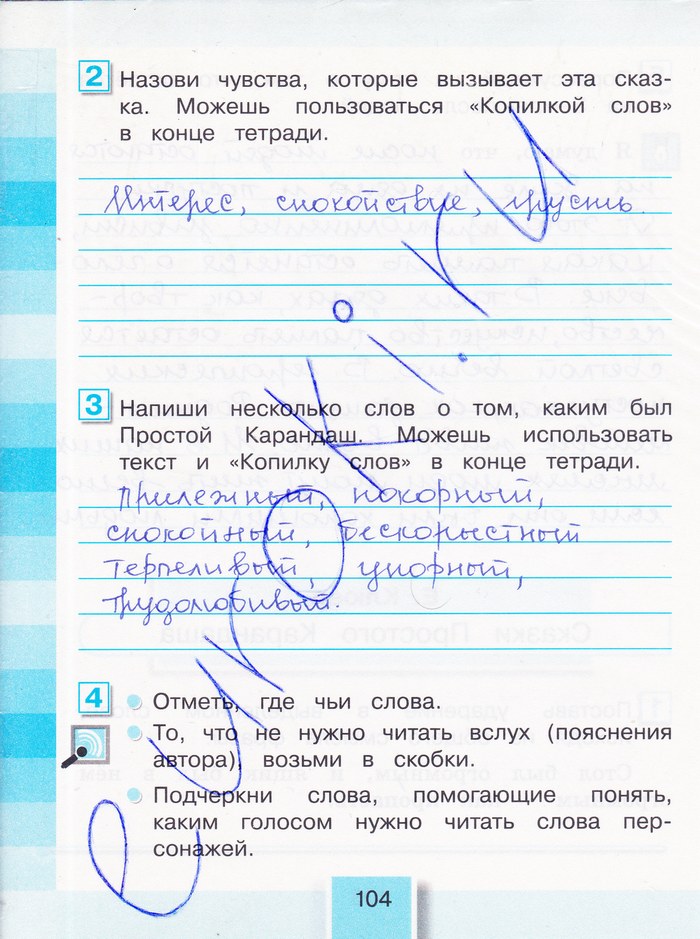 2 Назови чувства, которые вызывает эта сказ-
ка. Можешь пользоваться «Копилкой слов»
в конце тетради.
Интерес, спокойствие, грусть.
3 Напиши несколько слов о том, каким был
Простой Карандаш. Можешь использовать
текст и «Копилку слов» в конце тетради.
Прилежный, покорный,
спокойный, бескорыстный
Терпеливый, упорный,
Трудолюбивый.
4 Отметь, где чьи слова.
То, что не нужно читать вслух (пояснения
автора), возьми в скобки.
Подчеркни слова, помогающие понять,
каким голосом нужно читать слова пер-
сонажей.
104